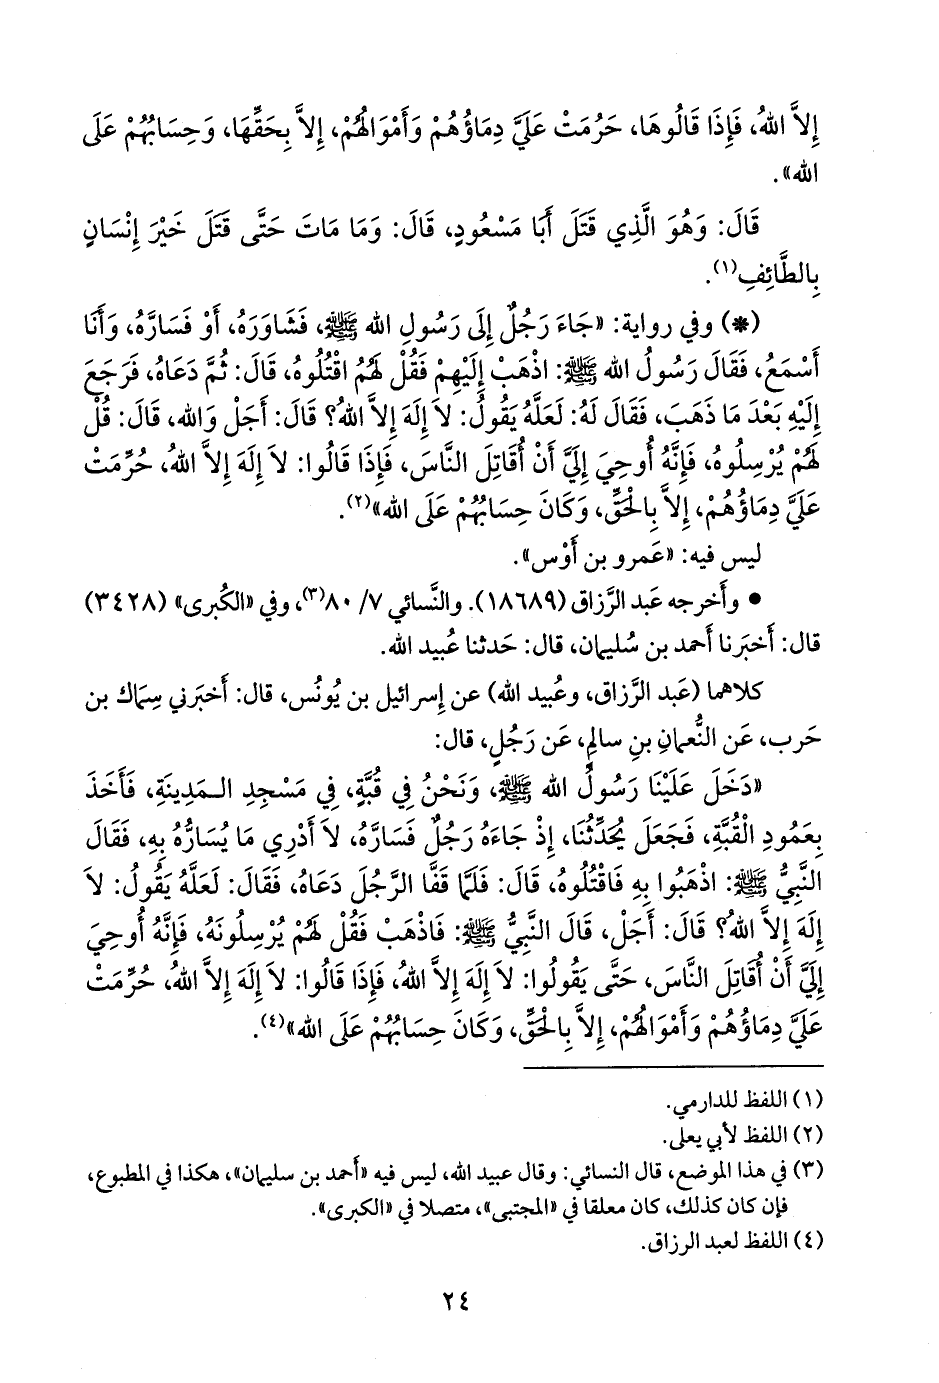 إِلاَّ اللهُ، فَإِذَا قَالُوهَا، حَرُمَتْ عَلَيَّ دِمَاؤُهُمْ وَأَمْوَالُهُمْ، إِلاَّ بِحَقِّهَا، وَحِسَابُهُمْ عَلَى
الله».
قَالَ: وَهُوَ الَّذِي قَتَلَ أَبَا مَسْعُودٍ، قَالَ: وَمَا مَاتَ حَتَّى قَتَلَ خَيْرَ إِنْسَانٍ
بِالطَّائِفِ(١).
(*) وفي رواية: «جَاءَ رَجُلٌ إِلَى رَسُولِ الله ﷺ، فَشَاوَرَهُ، أَوْ فَسَارَّهُ، وَأَنَا
أَسْمَعُ، فَقَالَ رَسُولُ الله ﷺ: اذْهَبْ إِلَيْهِمْ فَقُلْ لَهُمُ اقْتُلُوهُ، قَالَ: ثُمَّ دَعَاهُ، فَرَجَعَ
إِلَيْهِ بَعْدَ مَا ذَهَبَ، فَقَالَ لَهُ: لَعَلَّهُ يَقُولُ: لاَ إِلَهَ إِلاَّ اللهُ؟ قَالَ: أَجَلْ وَالله، قَالَ: قُلْ
لَهُمْ يُرْسِلُوهُ، فَإِنَّهُ أُوحِيَ إِلَيَّ أَنْ أُقَاتِلَ النَّاسَ، فَإِذَا قَالُوا: لاَ إِلَهَ إِلاَّ اللهُ، حُرِّمَتْ
عَلَيَّ دِمَاؤُهُمْ، إِلاَّ بِالْحَقِّ، وَكَانَ حِسَابُهُمْ عَلَى الله»(٢).
ليس فيه: «عَمرو بن أَوْس».
• وأَخرجه عَبد الرَّزاق (١٨٦٨٩). والنَّسائي ٧/ ٨٠(٣)، وفي «الكُبرى» (٣٤٢٨)
قال: أَخبَرنا أَحمد بن سُليمان، قال: حَدثنا عُبيد الله.
كلاهما (عَبد الرَّزاق، وعُبيد الله) عن إِسرائيل بن يُونُس، قال: أَخبَرني سِمَاك بن
حَرب، عَن النُّعمانِ بنِ سالمٍ، عَن رَجُلٍ، قال:
«دَخَلَ عَلَيْنَا رَسُولُ الله ﷺ، وَنَحْنُ فِي قُبَّةٍ، فِي مَسْجِدِ الـمَدِينَةِ، فَأَخَذَ
بِعَمُودِ الْقُبَّةِ، فَجَعَلَ يُحَدِّثُنَا، إِذْ جَاءَهُ رَجُلٌ فَسَارَّهُ، لاَ أَدْرِي مَا يُسَارُّهُ بِهِ، فَقَالَ
النَّبِيُّ ﷺ: اذْهَبُوا بِهِ فَاقْتُلُوهُ، قَالَ: فَلَمَّا قَفَّا الرَّجُلَ دَعَاهُ، فَقَالَ: لَعَلَّهُ يَقُولُ: لاَ
إِلَهَ إِلاَّ اللهُ؟ قَالَ: أَجَلْ، قَالَ النَّبِيُّ ﷺ: فَاذْهَبْ فَقُلْ لَهُمْ يُرْسِلُونَهُ، فَإِنَّهُ أُوحِيَ
إِلَيَّ أَنْ أُقَاتِلَ النَّاسَ، حَتَّى يَقُولُوا: لاَ إِلَهَ إِلاَّ اللهُ، فَإِذَا قَالُوا: لاَ إِلَهَ إِلاَّ اللهُ، حُرِّمَتْ
عَلَيَّ دِمَاؤُهُمْ وَأَمْوَالُهُمْ، إِلاَّ بِالْحَقِّ، وَكَانَ حِسَابُهُمْ عَلَى الله»(٤).
(١) اللفظ للدارمي.
(٢) اللفظ لأبي يعلى.
(٣) في هذا الموضع، قال النسائي: وقال عبيد الله، ليس فيه «أَحمد بن سليمان»، هكذا في المطبوع،
فإن كان كذلك، كان معلقا في «المجتبى»، متصلا في «الكبرى».
(٤) اللفظ لعبد الرزاق.
٢٤